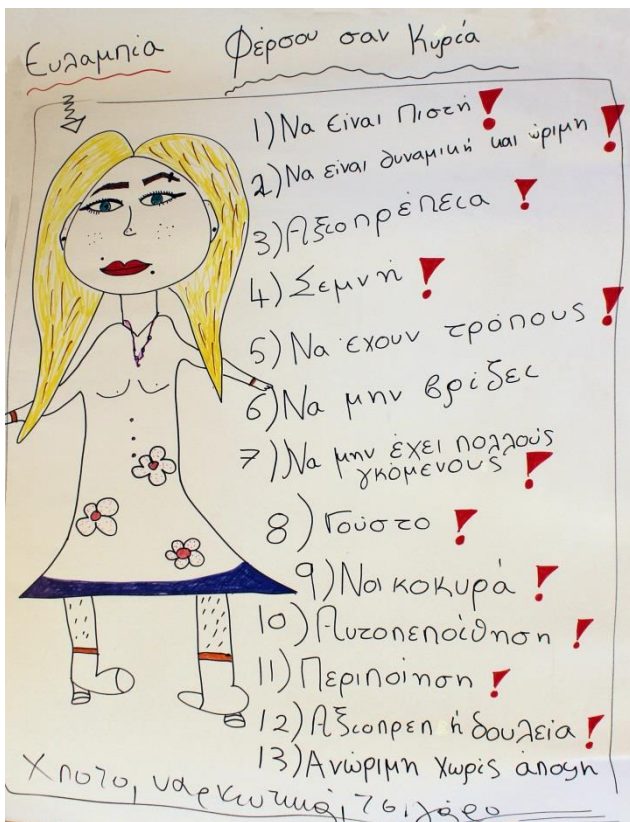 Ευλαμπία Φέρσου σαν Κυρία
1) Να είναι Πιστή!
2) Να είναι δυναμική και ώριμη!
3) Αξιοπρέπεια!
4) Σεμνή!
5) Να έχουν τρόπους!
6) Να μην βρίζες
7) Να μην έχει πολλούς
γκόμενους!
8) Γούστο!
9) Νοικοκυρά!
10) Αυτοπεποίθηση!
11) Περιποίηση!
12) Αξιοπρεπή δουλεία!
13) Ανώριμη χωρίς άποψη